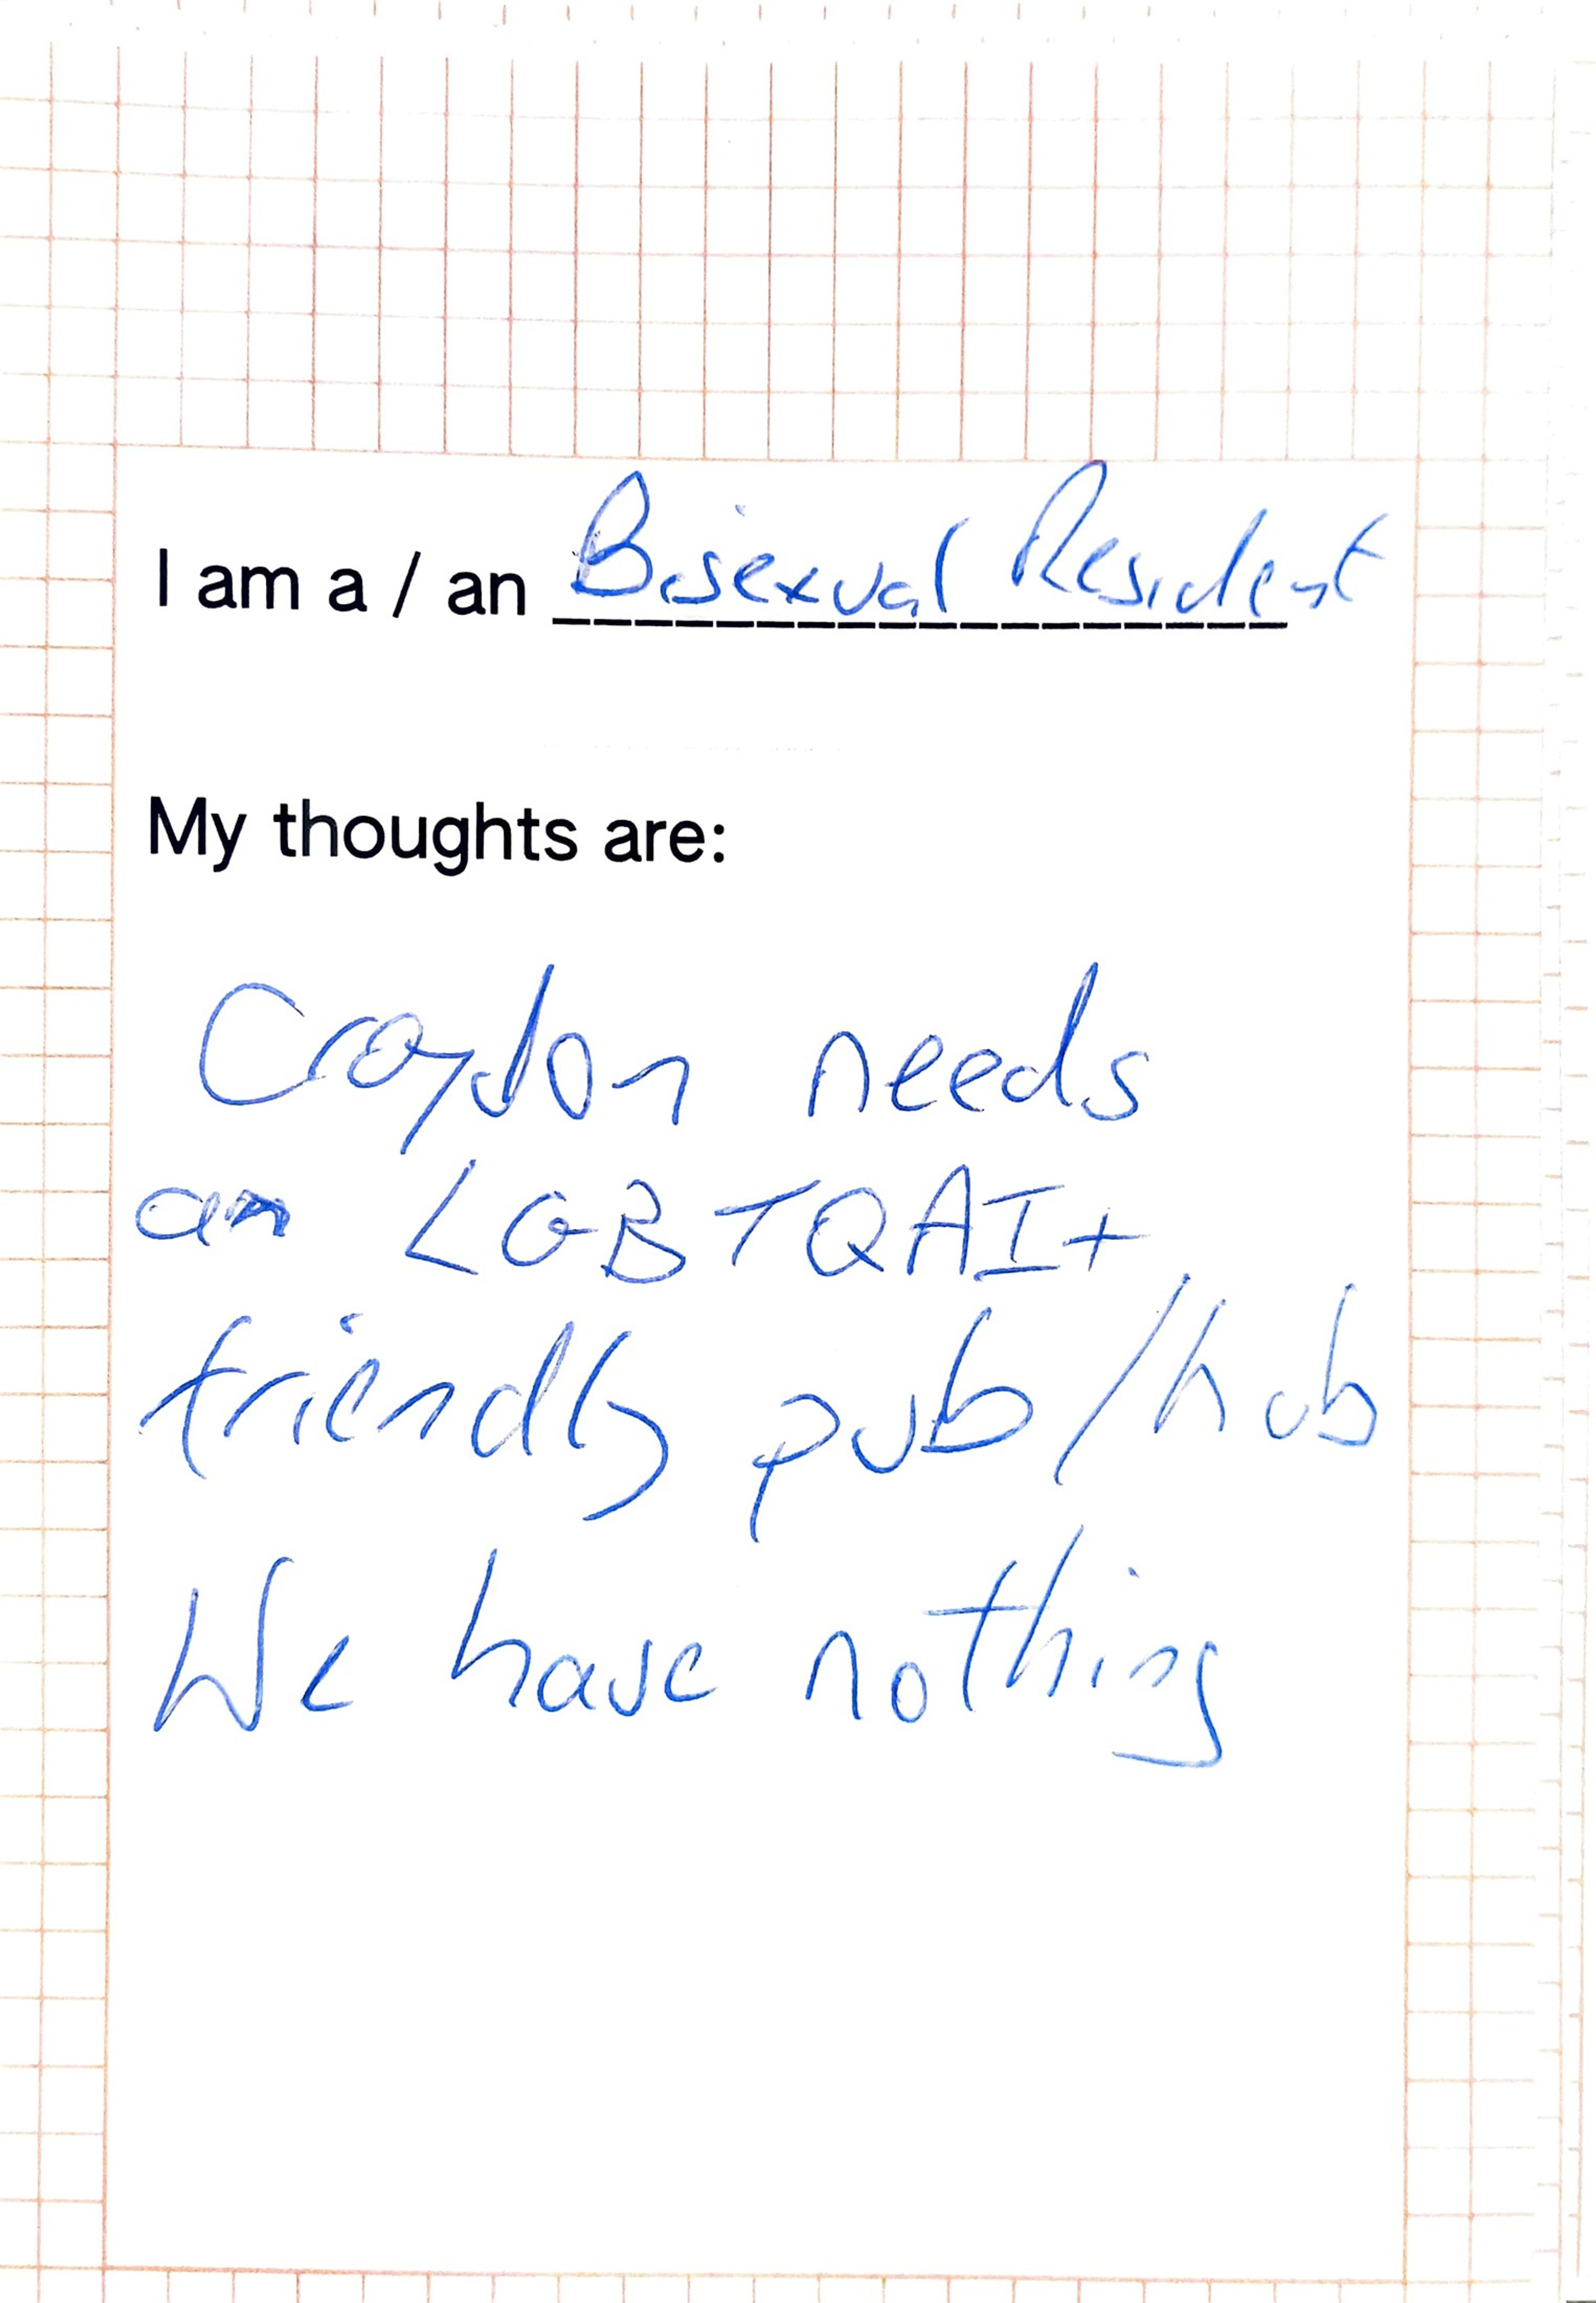 I am a / an Bisexual Resident
My thoughts are:
Croydon needs
an LGBTQAI+
friendly pub/hub
We have nothing